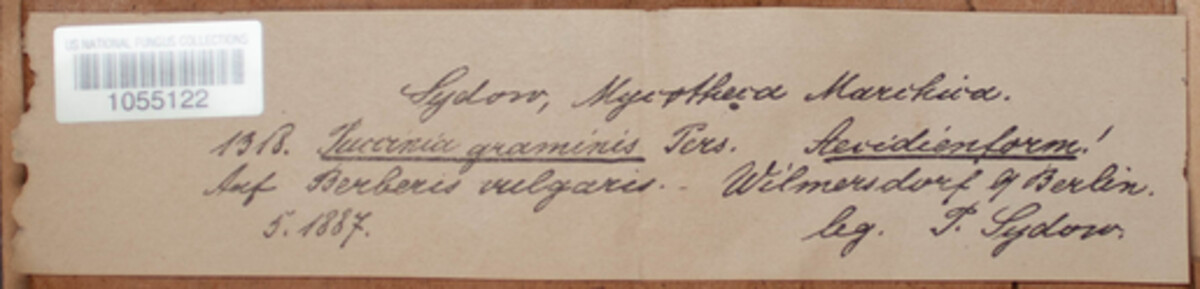 US NATIONAL FUNGUS COLLECTIONS
1055122
Sydow, Mycotheca Marchica.
1318. Puccinia graminis Pers. Aecidienform!
Auf Berberis vulgaris. - Wilmersdorf b/Berlin.
5. 1887. leg. P. Sydow.